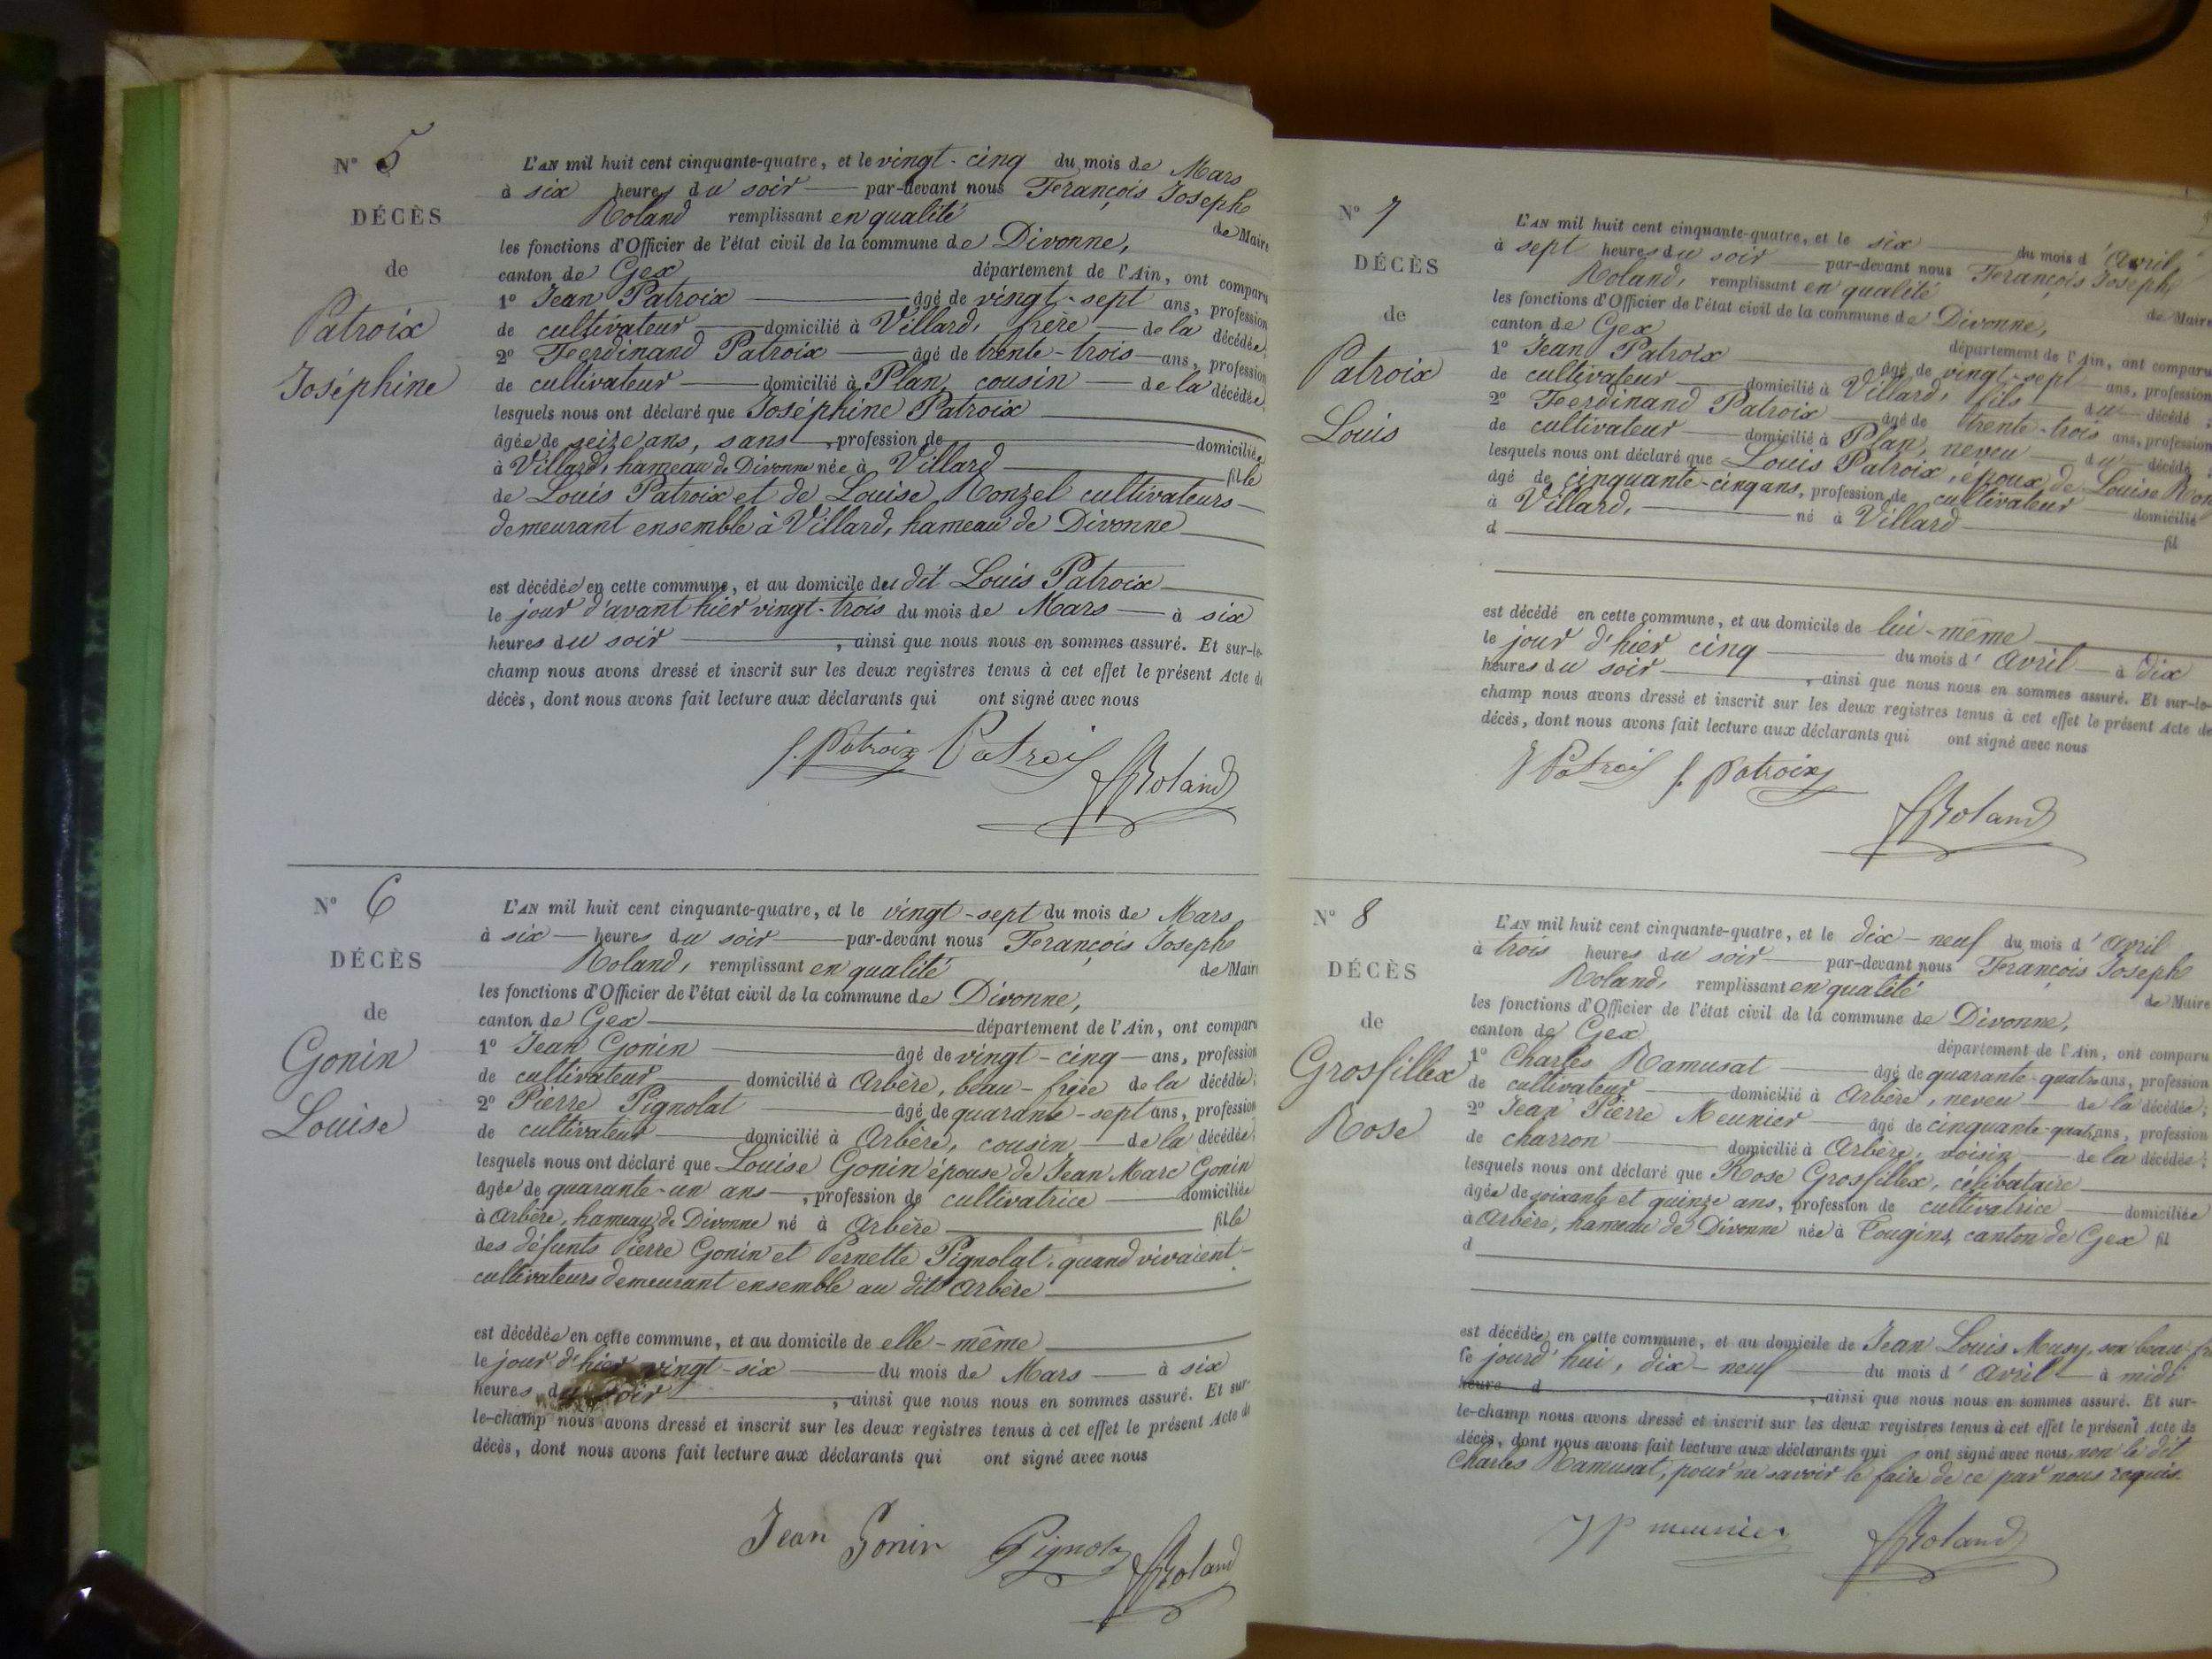 N° 5
DÉCÈS
de
Patroix
Joséphine
L'AN mil huit cent cinquante-quatre, et le vingt-cinq du mois de Mars
à six heures du soir par-devant nous François Joseph
Roland remplissant en qualité de Maire
les fonctions d'Officier de l'état civil de la commune de Divonne,
canton de Gex département de l'Ain, ont comparu
1° Jean Patroix âgé de vingt-sept ans, profession
de cultivateur domicilié à Villard, frère de la décédée;
2° Ferdinand Patroix âgé de trente-trois ans, profession
de cultivateur domicilié à Plan, cousin de la décédée,
lesquels nous ont déclaré que Joséphine Patroix
âgée de seize ans, sans profession de domiciliée
à Villard, hameau de Divonne née à Villard fille
de Louis Patroix et de Louise Ronzel cultivateurs
demeurant ensemble à Villard, hameau de Divonne
est décédée en cette commune, et au domicile du dit Louis Patroix
le jour d'avant hier vingt-trois du mois de Mars à six
heures du soir, ainsi que nous nous en sommes assuré. Et sur-le-
champ nous avons dressé et inscrit sur les deux registres tenus à cet effet le présent Acte de
décès, dont nous avons fait lecture aux déclarants qui ont signé avec nous
f. Patroix Patroix
JfRoland
N° 6
DÉCÈS
de
Gonin
Louise
L'AN mil huit cent cinquante-quatre, et le vingt-sept du mois de Mars
à six heures du soir par-devant nous François Joseph
Roland, remplissant en qualité de Maire
les fonctions d'Officier de l'état civil de la commune de Divonne,
canton de Gex département de l'Ain, ont comparu
1° Jean Gonin âgé de vingt-cinq ans, profession
de cultivateur domicilié à Arbère, beau-frère de la décédée;
2° Pierre Pignolat âgé de quarante-sept ans, profession
de cultivateur domicilié à Arbère, cousin de la décédée;
lesquels nous ont déclaré que Louise Gonin épouse de Jean Marc Gonin
âgée de quarante-un ans, profession de cultivatrice domiciliée
à Arbère, hameau de Divonne né à Arbère fille
des défunts Pierre Gonin et Pernette Pignolat, quand vivaient
cultivateurs demeurant ensemble au dit Arbère
est décédée en cette commune, et au domicile de elle-même
le jour d'hier vingt-six du mois de Mars à six
heures du soir, ainsi que nous nous en sommes assuré. Et sur-
le-champ nous avons dressé et inscrit sur les deux registres tenus à cet effet le présent Acte de
décès, dont nous avons fait lecture aux déclarants qui ont signé avec nous
Jean Gonin Pignolat JfRoland
N° 7
DÉCÈS
de
Patroix
Louis
L'AN mil huit cent cinquante-quatre, et le six du mois d'Avril
à sept heures du soir par-devant nous François Joseph
Roland, remplissant en qualité de Maire
les fonctions d'Officier de l'état civil de la commune de Divonne,
canton de Gex département de l'Ain, ont comparu
1° Jean Patroix âgé de vingt-sept ans, profession
de cultivateur domicilié à Villard, fils du décédé;
2° Ferdinand Patroix âgé de trente-trois ans, profession
de cultivateur domicilié à Plan, neveu du décédé;
lesquels nous ont déclaré que Louis Patroix, époux de Louise Ron
âgé de cinquante-cinq ans, profession de cultivateur domicilié
à Villard, né à Villard fil
d
est décédé en cette commune, et au domicile de lui-même
le jour d'hier cinq du mois d'Avril à dix
heures du soir, ainsi que nous nous en sommes assuré. Et sur-le-
champ nous avons dressé et inscrit sur les deux registres tenus à cet effet le présent Acte de
décès, dont nous avons fait lecture aux déclarants qui ont signé avec nous
J Patroix f. Patroix
JfRoland
N° 8
DÉCÈS
de
Grosfillex
Rose
L'AN mil huit cent cinquante-quatre, et le dix-neuf du mois d'Avril
à trois heures du soir par-devant nous François Joseph
Roland, remplissant en qualité de Maire
les fonctions d'Officier de l'état civil de la commune de Divonne,
canton de Gex département de l'Ain, ont comparu
1° Charles Ramusat âgé de quarante-quatre ans, profession
de cultivateur domicilié à Arbère, neveu de la décédée;
2° Jean Pierre Meunier âgé de cinquante-quatre ans, profession
de charron domicilié à Arbère, voisin de la décédée;
lesquels nous ont déclaré que Rose Grosfillex, célibataire
âgée de soixante et quinze ans, profession de cultivatrice domiciliée
à Arbère, hameau de Divonne née à Tougins, canton de Gex fil
d
est décédée en cette commune, et au domicile de Jean Louis Musy, son beau-frè
le jourd'hui, dix-neuf du mois d'Avril à midi
heure d, ainsi que nous nous en sommes assuré. Et sur-
le-champ nous avons dressé et inscrit sur les deux registres tenus à cet effet le présent Acte de
décès, dont nous avons fait lecture aux déclarants qui ont signé avec nous, non le dit
Charles Ramusat, pour ne savoir le faire de ce par nous requis.
JP meunier JfRoland